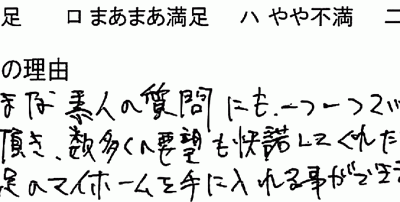 足 ロ まあまあ満足 ハ やや不満 ニ
の理由
まな素人の質問にも、一つ一つ
頂き、数多くの要望も快諾してくれた
足のマイホームを手に入れる事ができ